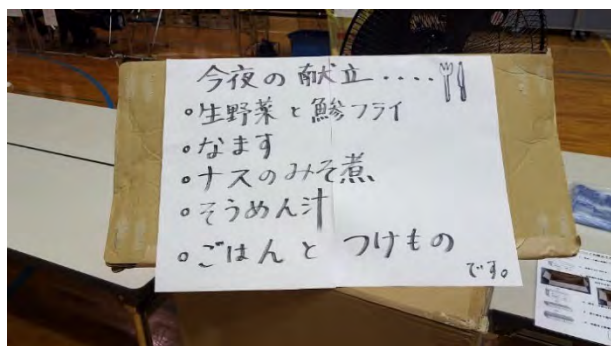 今夜の献立....
○生野菜と鯵フライ
○なます
○ナスのみそ煮
○そうめん汁
○ごはんとつけもの
です。